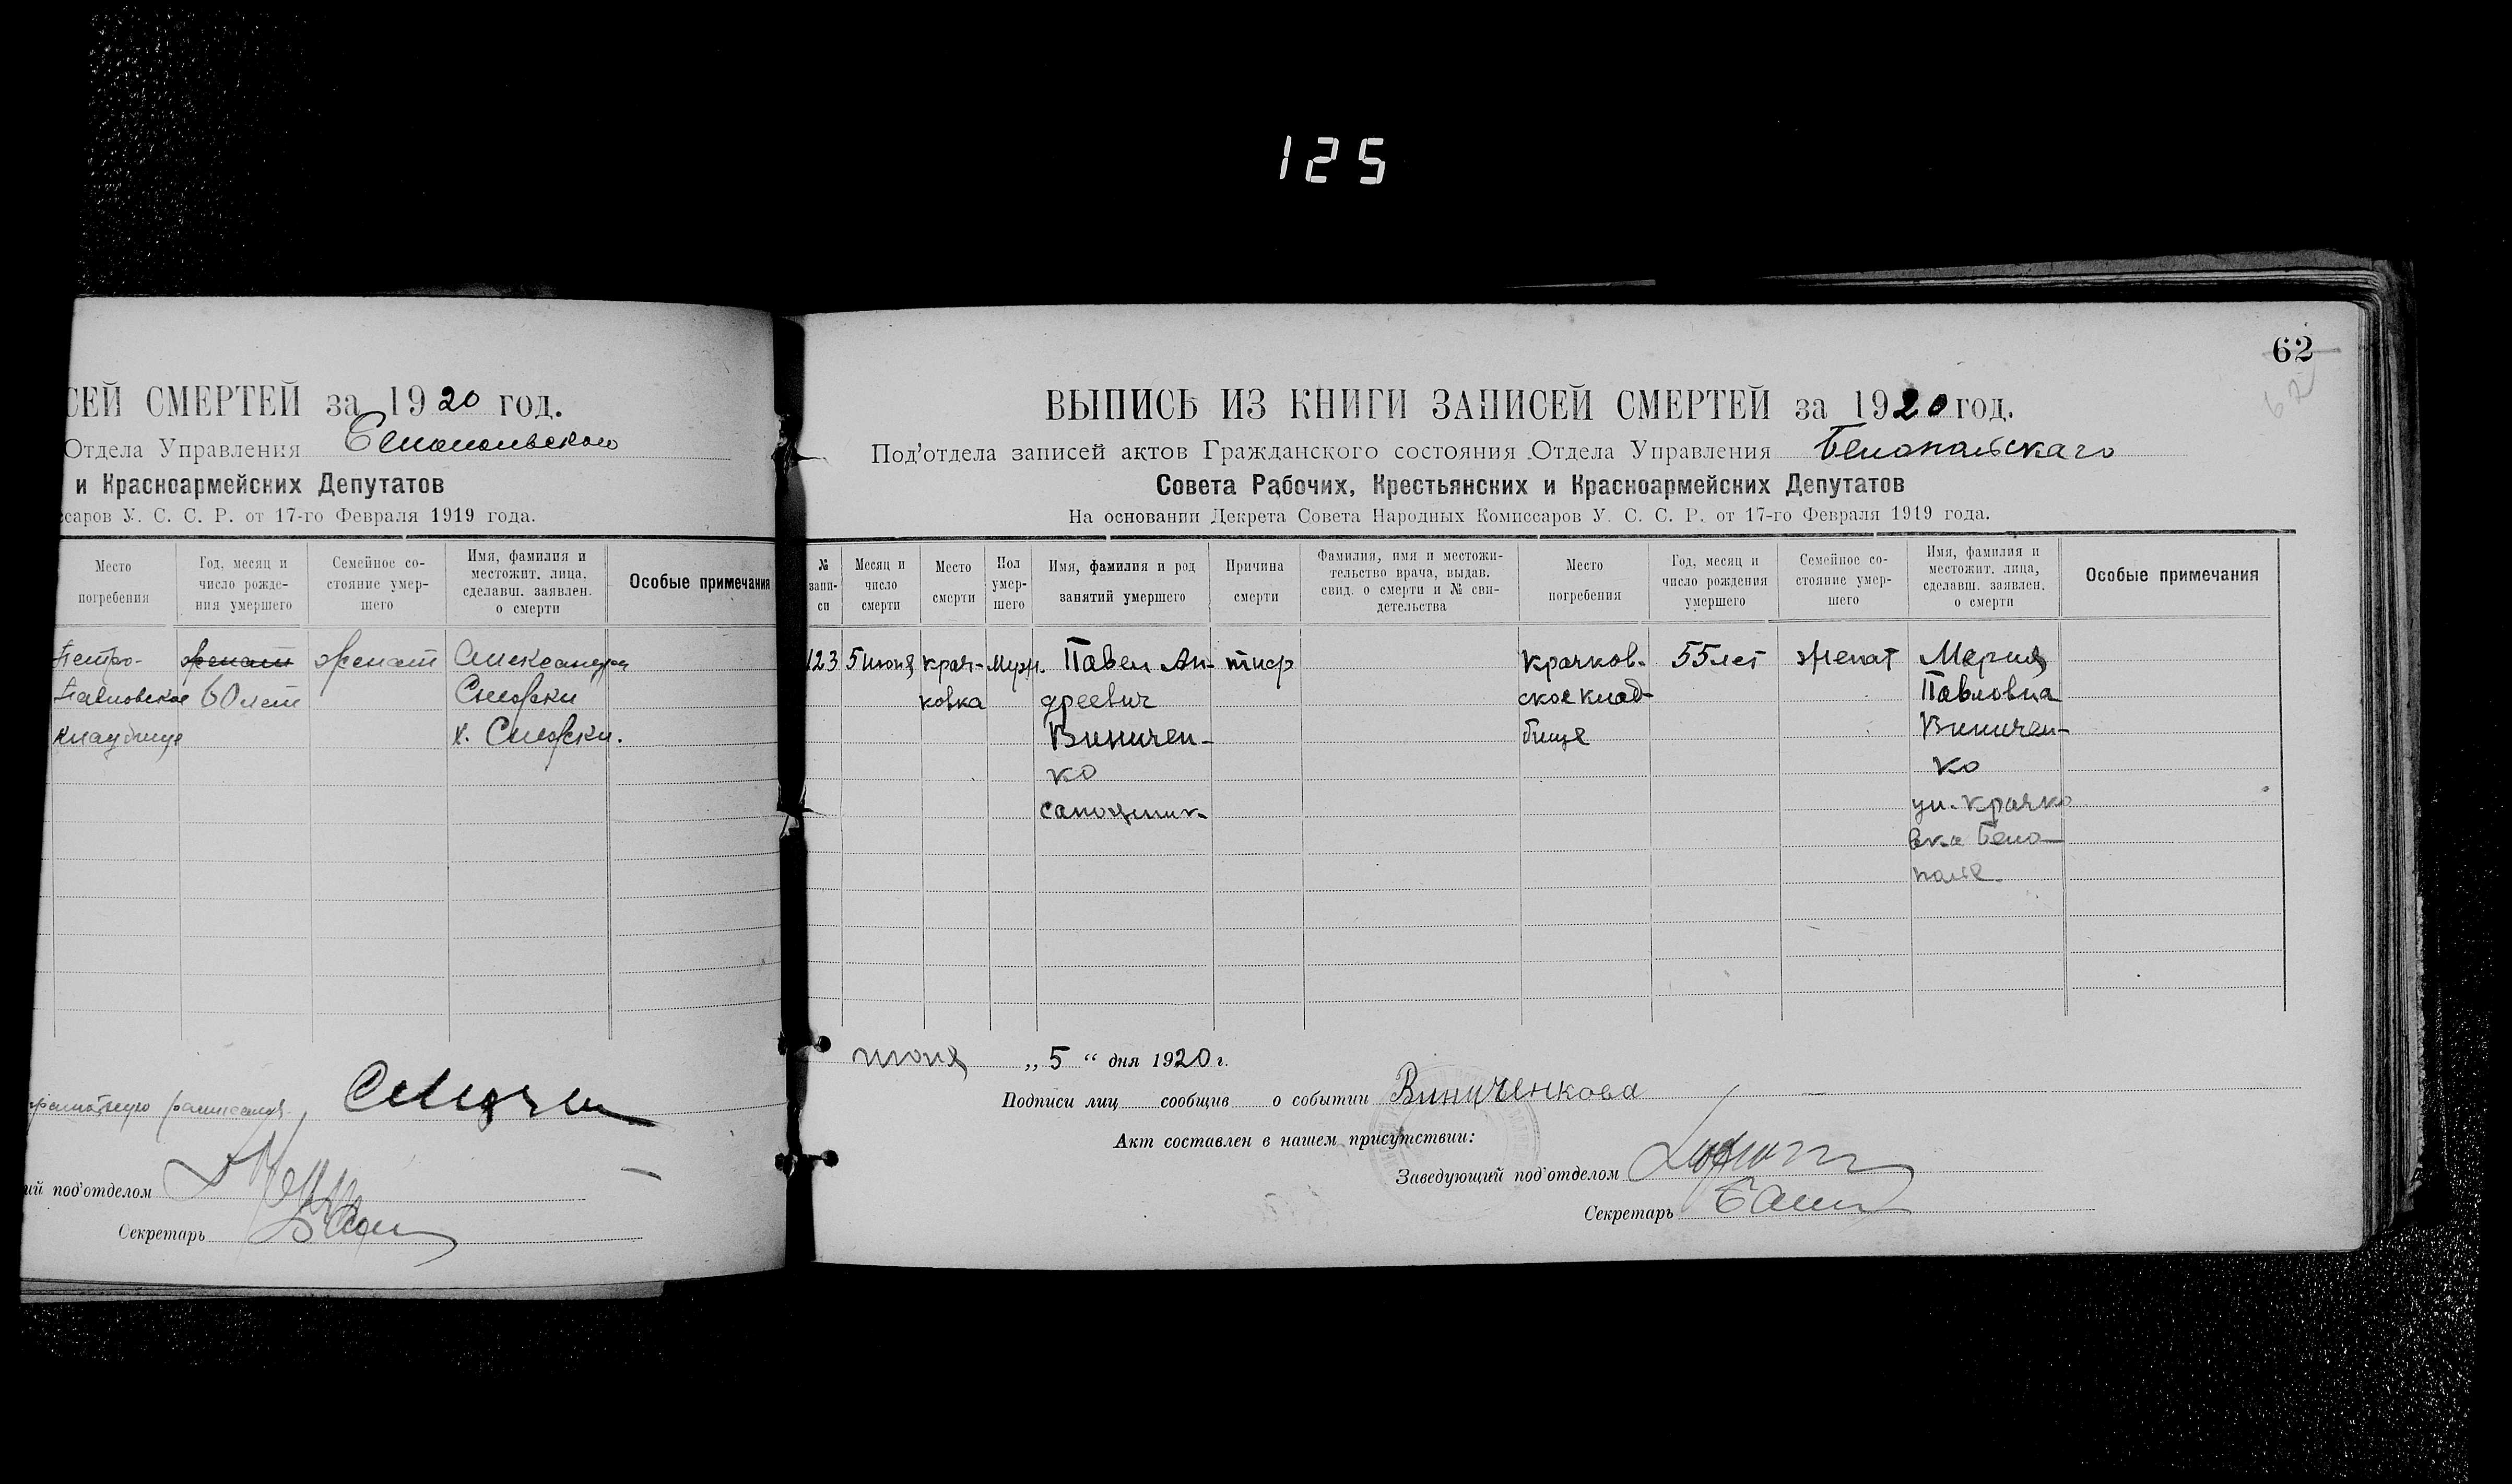 125
СЕЙ СМЕРТЕЙ за 1920 год.
Отдела Управления Белопольского
и Красноармейских Депутатов
ссаров У. С. С. Р. от 17-го Февраля 1919 года.
Место погребения
Год, месяц и число рождения умершего
Семейное состояние умершего
Имя, фамилия и местожит. лица, сделавш. заявлен. о смерти
Особые примечания
Петро-
Павловское
кладбище
женат
60 лет
женат
Александра
ий под'отделом
Секретарь
62
62
ВЫПИСЬ ИЗ КНИГИ ЗАПИСЕЙ СМЕРТЕЙ за 1920 год.
Под'отдела записей актов Гражданского состояния Отдела Управления Белопольскаго
Совета Рабочих, Крестьянских и Красноармейских Депутатов
На основании Декрета Совета Народных Комиссаров У. С. С. Р. от 17-го Февраля 1919 года.
№ запи-си
Месяц и число смерти
Место смерти
Пол умер-шего
Имя, фамилия и род занятий умершего
Причина смерти
Фамилия, имя и местожи-тельство врача, выдав. свид. о смерти и № сви-детельства
Место погребения
Год, месяц и число рождения умершего
Семейное со-стояние умер-шего
Имя, фамилия и местожит. лица, сделавш. заявлен. о смерти
Особые примечания
123
5 июня
Крач-
ковка
Муж.
Павел Ан-
дреевич
Виничен-
ко
сапожник
тиф
Крачков-
ское клад-
бище
55 лет
женат
Мария
Павловна
Виничен-
ко
ул. Крачко
вка Бело-
полье
июня „ 5 “ дня 1920 г.
Подписи лиц сообщив о событии Виниченкова
Акт составлен в нашем присутствии:
Заведующий под'отделом
Секретарь